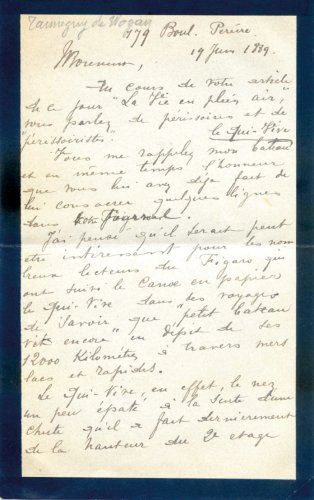 Tanneguy de Wogan
179 Boul. Pereire
19 Juin 1889.
Monsieur,
Au cours de votre article
de ce jour "La Vie en plein air,"
vous parlez de périssoires et de
"périssoiristes". le Qui-Vive
Vous me rappelez mon bateau
et en même temps l'honneur
que vous lui avez déjà fait de
lui consacrer quelques lignes
dans votre Journal.
J'ai pensé qu'il serait peut
être intéressant pour les nom
breux lecteurs du Figaro qui
ont suivi le Canoe en papier
le Qui-Vive dans ses voyages
de savoir que "petit bateau
vit encore" en dépit de ses
12000 Kilomètres à travers mers
lacs et rapides.
Le Qui-Vive, en effet, le nez
un peu épaté à la suite d'une
chute qu'il a fait dernièrement
de la hauteur du 2e étage